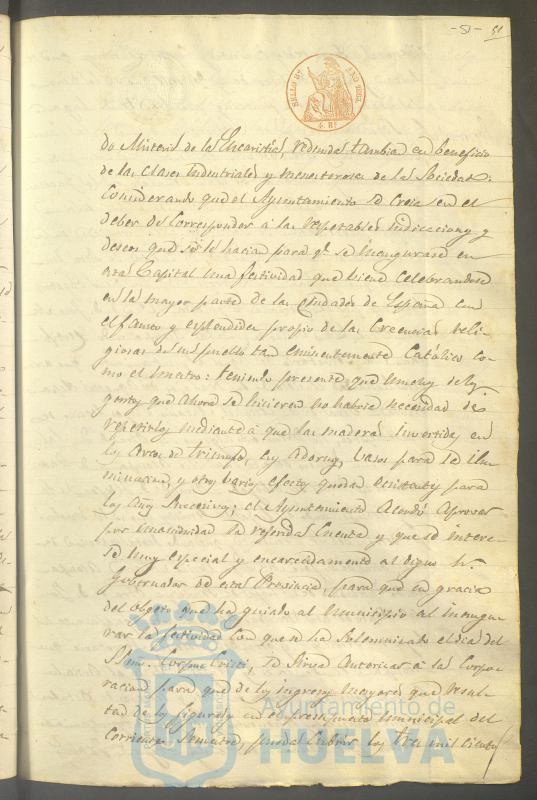 -51- 51
SELLO 8º AÑO 1861.
4 Rs
do Misterio de la Eucaristia, redunda tambien en beneficio
de las Clases Industriales y menesterosas de la Sociedad:
Considerando que el Ayuntamiento se creia en el
deber de Corresponder á las respetables Indicaciones y
deseos que se le hacian para qe. se inaugurase en
esta Capital una festividad que viene celebrandose
en la mayor parte de las Ciudades de España con
el fausto y esplendidez propio de las Creencias reli
giosas de un pueblo tan eminentemente Católico co
mo el nuestro: teniendo presente que muchos de los
gastos que ahora se hicieren no habrá necesidad de
repetirlos mediante á que las maderas invertidas en
los Arcos de triunfo, sus adornos, vasos para la ilu
minacion y otros varios efectos quedan existentes para
los años sucesivos; el Ayuntamiento Acordó Aprovar
por unanimidad la referida Cuenta y que se intere
se muy especial y encarecidamente al digno Sr.
Gobernador de esta Provincia, para que en gracia
del objeto que ha guiado al Municipio al inaugu
rar la festividad con que se ha solemnizado el dia del
Smo. Corpus Cristi, se sirva autorizar á la Corpo
racion para que de los ingresos mayores que resul
tan de los figurados en el presupuesto municipal del
Corriente Semestre, puedan cubrir los tres mil ciento
Ayuntamiento de
HUELVA